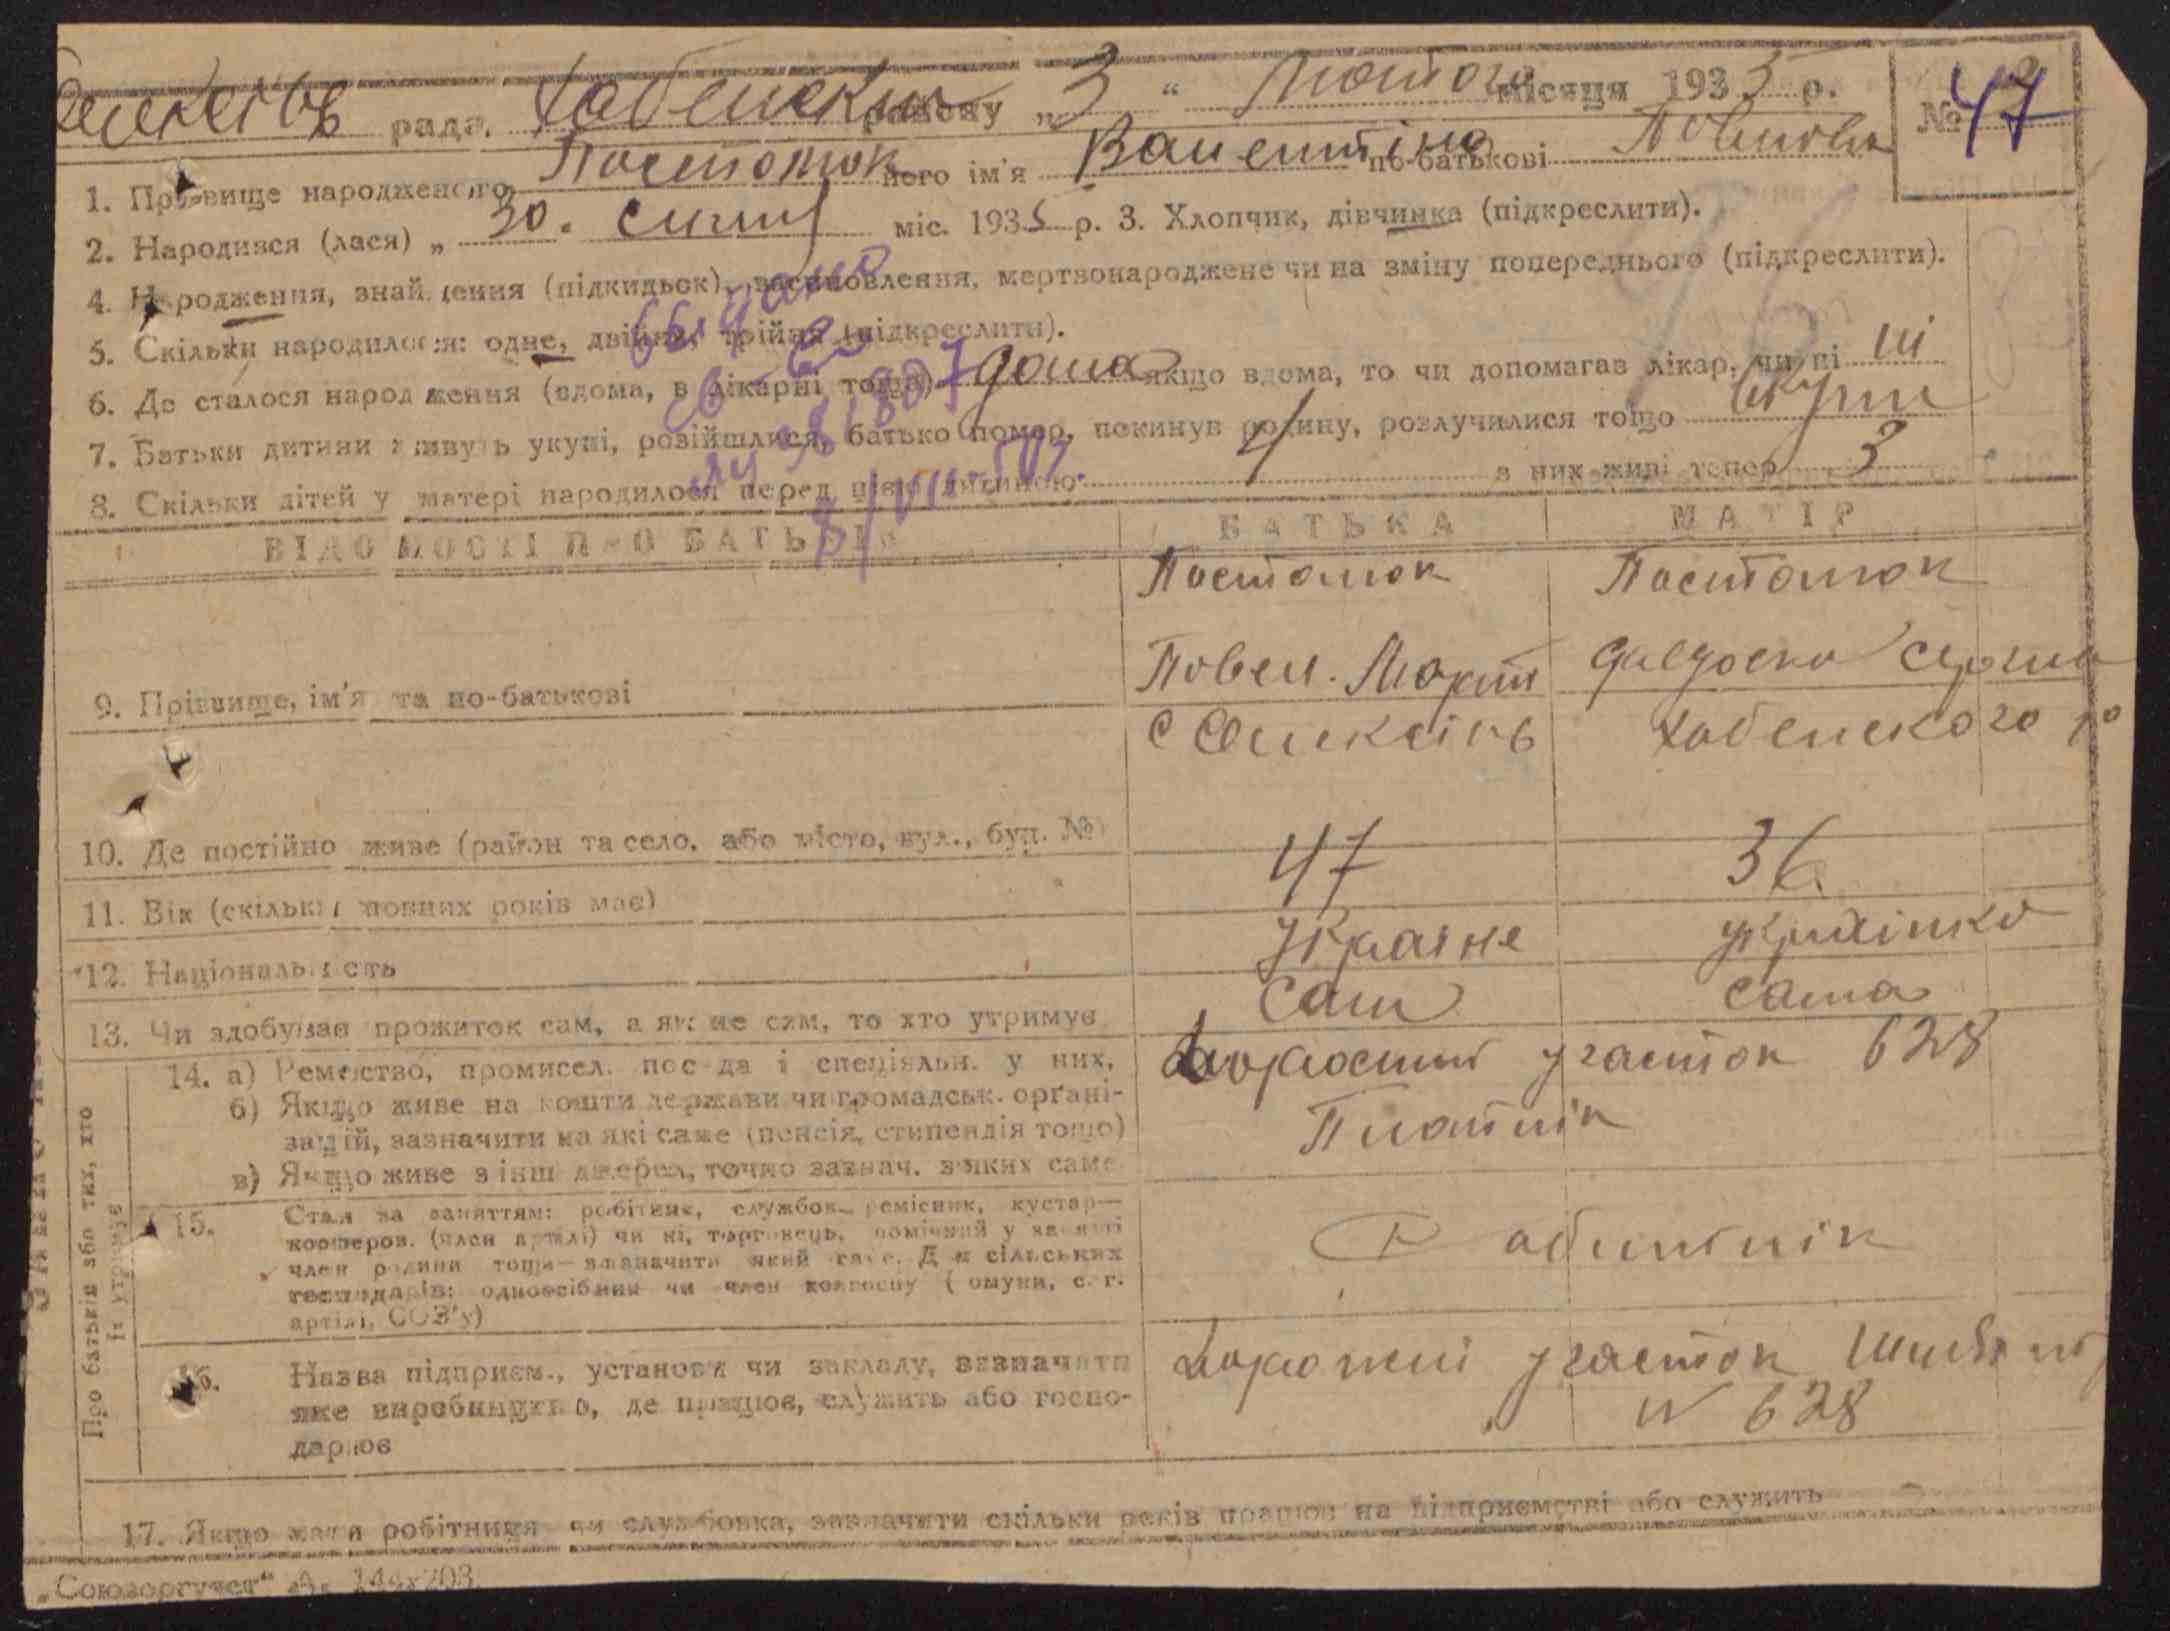 рада. Хабенский району „3“ Лютого місяця 1935 р. № 47
1. Прізвище народженого Постолюк його ім'я Валентіна по-батькові Повлов
2. Народився (лася) „30. січня міс. 1935 р. 3. Хлопчик, дівчинка (підкреслити).
4. Народження, знайдення (підкидьок), всиновлення, мертвонароджене чи на зміну попереднього (підкреслити).
5. Скільки народилося: одне, двійня, трійня (підкреслити).
6. Де сталося народження (вдома, в лікарні тощо) дома якщо вдома, то чи допомагав лікар, чи ні ні
7. Батьки дитини живуть укупі, розійшлися, батько помер, покинув родину, розлучилися тощо вкупи
8. Скільки дітей у матері народилося перед цією дитиною 4 з них живі тепер 3
видано
св-во
ВІДОМОСТІ ПРО БАТЬКІВ БАТЬКА МАТІР
Постолюк Постолюк
9. Прізвище, ім'я та по-батькові Повел. Март
с Хабенского р
10. Де постійно живе (район та село, або місто, вул., буд. №)
11. Вік (скільки повних років має) 47 36
12. Національність Украіне украінка
13. Чи здобуває прожиток сам, а як не сам, то хто утримує Сам сама
Про батьків або тих, хто їх утримує
14. а) Ремество, промисел, посада і спеціяльн. у них, участок 628
б) Якщо живе на кошти держави чи громадськ. органі-
зацій, зазначити на які саме (пенсія, стипендія тощо) Плотнік
в) Якщо живе з інш джерел, точно зазнач. з яких саме
15. Стан за заняттям: робітник, службов., ремісник, кустар—
коопєров. (член артілі) чи ні, торговець, помічний у занятті
член родини тощо—зазначити який саме. Для сільських
господарів: одноосібник чи член колгоспу (комуни, с.-г.
артілі, СОЗ'у) Работнік
16. Назва підприєм., установи чи закладу, зазначити Дорожні участок
яке виробництво, де працює, служить або госпо- № 628
дарює
17. Якщо мати робітниця чи службовка, зазначити скільки років працює на підприємстві або служить
„Союзоргучет“